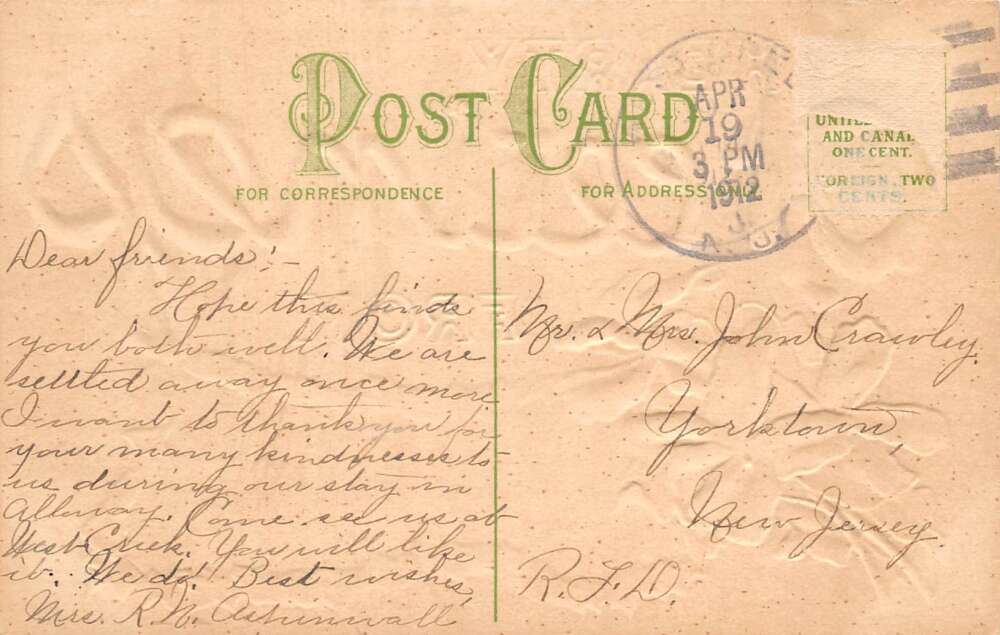 POST CARD
FOR CORRESPONDENCE
FOR ADDRESS ONLY
APR
19
3 PM
1912
N. J.
AND CANA
ONE CENT.
FOREIGN, TWO
CENTS.
Dear friends:-
Hope this finds
you both well. We are
settled away once more
I want to thank you for
your many kindnesses to
us during our stay in
Alloway. Come see us at
West Creek. You will like
it. We do! Best wishes,
Mrs. R. N.
Mr. & Mrs. John Crawley.
Yorktown,
New Jersey
R. F. D.